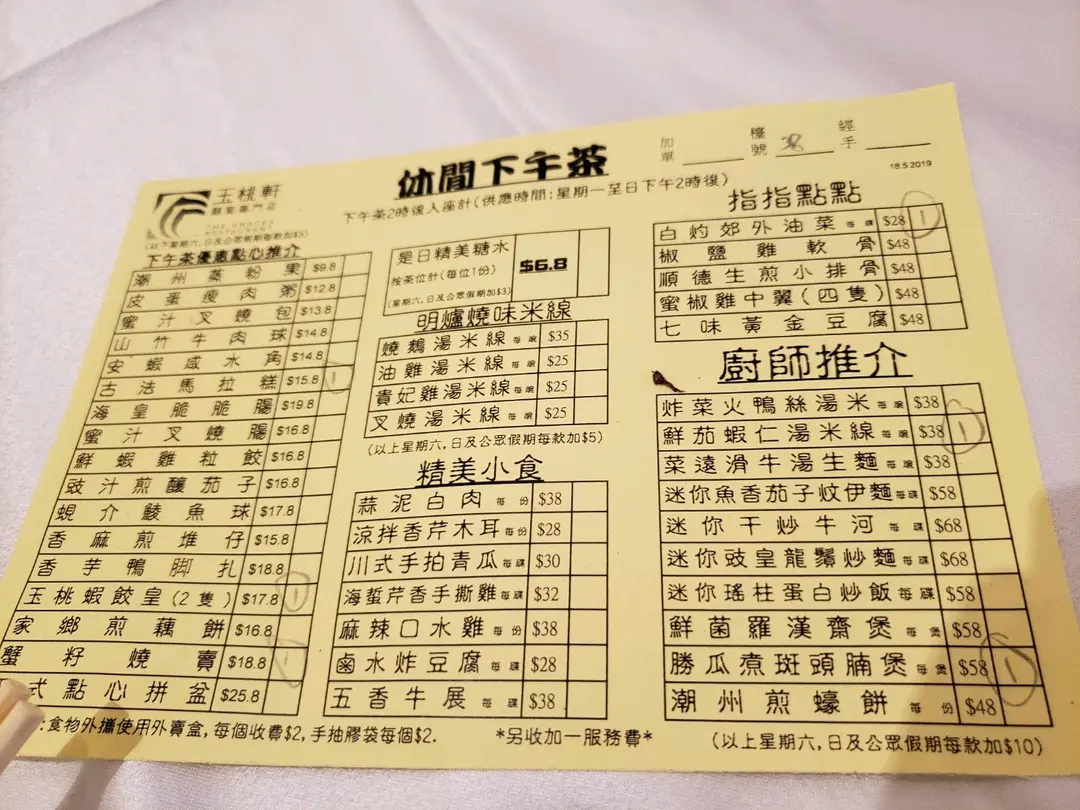 休閒下午茶
下午茶2時後入座計(供應時間:星期一至日下午2時後)
加單
檯號 38
經手
18.5.2019
玉桃軒
THE GRACES
RESTAURANT
(以下星期六,日及公眾假期每款加$5)
下午茶優惠點心推介
潮州蒸粉果 $9.8
皮蛋瘦肉粥 $12.8
蜜汁叉燒包 $13.8
山竹牛肉球 $14.8
安蝦咸水角 $14.8
古法馬拉糕 $15.8 1
海皇脆脆腸 $19.8
蜜汁叉燒腸 $16.8
鮮蝦雞粒餃 $16.8
豉汁煎釀茄子 $16.8
蜆介鯪魚球 $17.8
香麻煎堆仔 $15.8
香芋鴨脚扎 $18.8
玉桃蝦餃皇(2隻) $17.8 1
家鄉煎藕餅 $16.8
蟹籽燒賣 $18.8 1
式點心拼盆 $25.8
是日精美糖水
按茶位計(每位1份)
(星期六,日及公眾假期加$3)
$6.8
明爐燒味米線
燒鵝湯米線 每碗 $35
油雞湯米線 每碗 $25
貴妃雞湯米線 每碗 $25
叉燒湯米線 每碗 $25
(以上星期六,日及公眾假期每款加$5)
精美小食
蒜泥白肉 每份 $38
涼拌香芹木耳 每份 $28
川式手拍青瓜 每碟 $30
海蜇芹香手撕雞 每碟 $32
麻辣口水雞 每份 $38
鹵水炸豆腐 每碟 $28
五香牛展 每碟 $38
指指點點
白灼郊外油菜 每碟 $28 1
椒鹽雞軟骨 $48
順德生煎小排骨 $48
蜜椒雞中翼(四隻) $48
七味黃金豆腐 $48
廚師推介
炸菜火鴨絲湯米 每碗 $38
鮮茄蝦仁湯米線 每碗 $38 1
菜遠滑牛湯生麵 每碗 $38
迷你魚香茄子炆伊麵 每碟 $58
迷你干炒牛河 每碟 $68
迷你豉皇龍鬚炒麵 每碟 $68
迷你瑤柱蛋白炒飯 每碟 $58
鮮菌羅漢齋煲 每煲 $58
勝瓜煮斑頭腩煲 每煲 $58 1
潮州煎蠔餅 每份 $48
(以上星期六,日及公眾假期每款加$10)
:食物外攜使用外賣盒,每個收費$2,手抽膠袋每個$2.
*另收加一服務費*